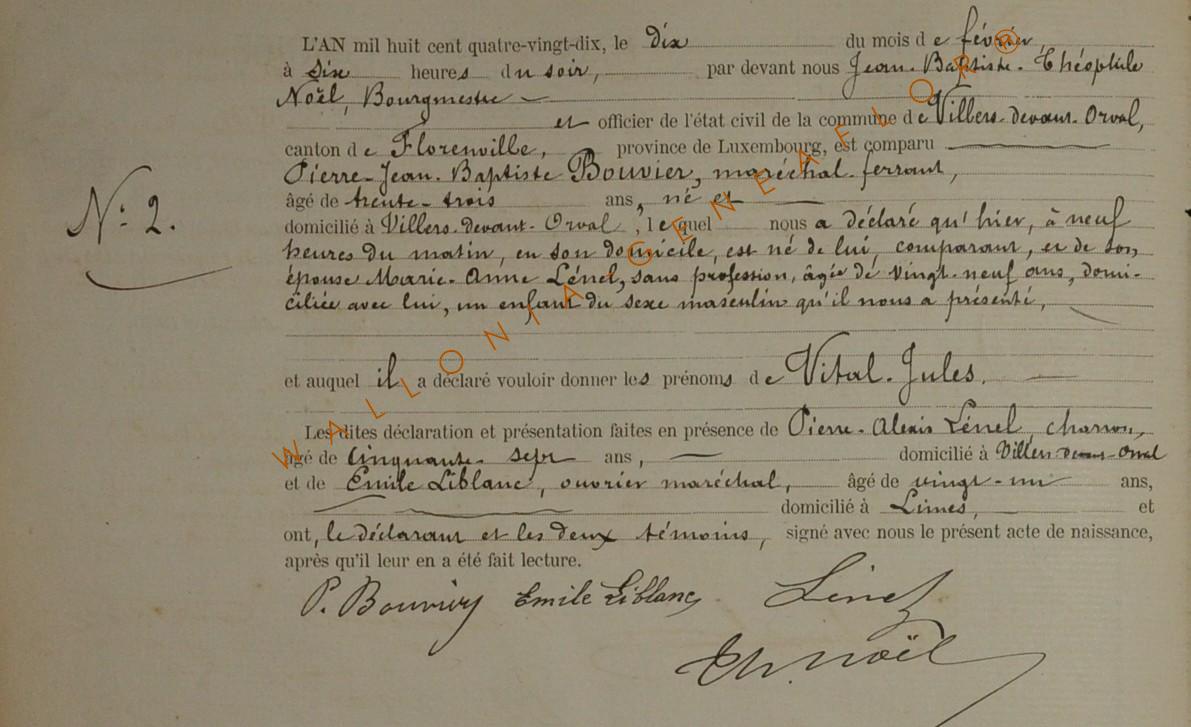 L'AN mil huit cent quatre-vingt-dix, le dix du mois de février,
à six heures du soir, par devant nous Jean-Baptiste-Théophile
Noël, Bourgmestre
et officier de l'état civil de la commune de Villers-devant-Orval,
canton de Florenville, province de Luxembourg, est comparu
Pierre-Jean-Baptiste Bouvier, maréchal-ferrant,
âgé de trente-trois ans, né et
domicilié à Villers-devant-Orval, lequel nous a déclaré qu'hier, à neuf
N° 2.
heures du matin, en son domicile, est né de lui, comparant, et de son
épouse Marie-Anne Lénel, sans profession, âgée de vingt-neuf ans, domi-
ciliée avec lui, un enfant du sexe masculin qu'il nous a présenté,
et auquel il a déclaré vouloir donner les prénoms de Vital-Jules.
Les dites déclaration et présentation faites en présence de Pierre-Alexis Lénel, charron,
âgé de cinquante-sept ans, domicilié à Villers-devant-Orval
et de Emile Liblanc, ouvrier maréchal, âgé de vingt-un ans,
domicilié à Limes, et
ont, le déclarant et les deux témoins, signé avec nous le présent acte de naissance,
après qu'il leur en a été fait lecture.
P. Bouvier Emile Liblanc Lénel
Th. Noël
WALLONIA GENEAFLOR ®